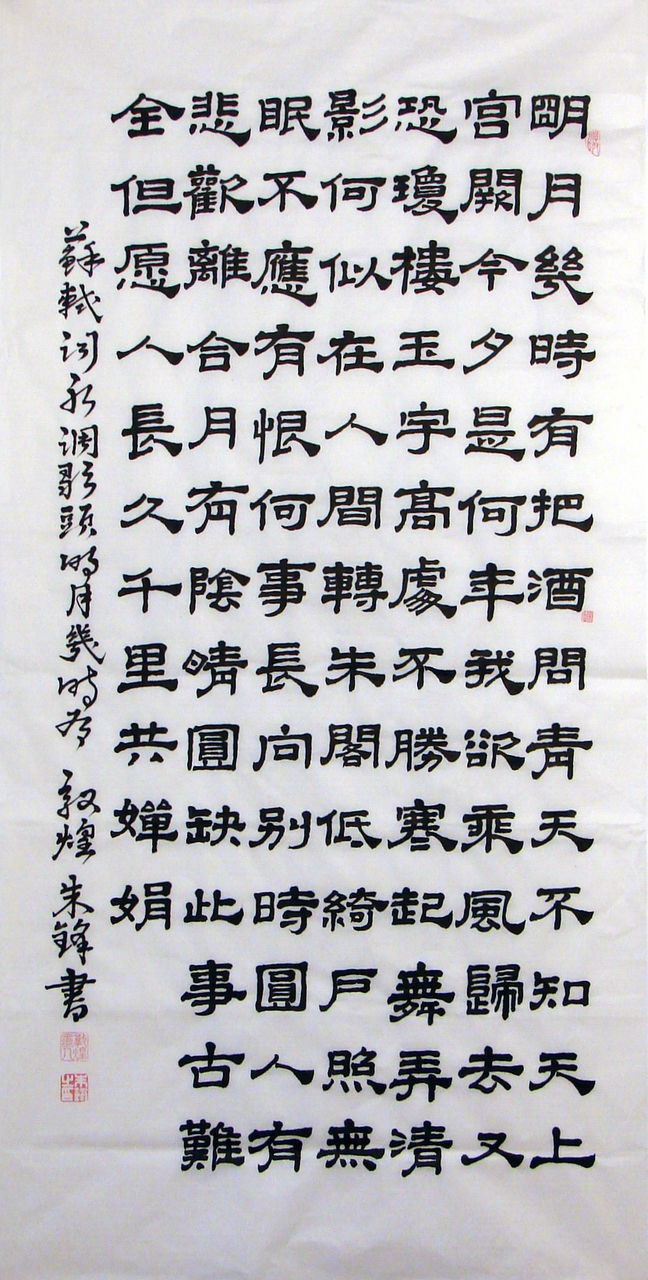 明月幾時有把酒問青天不知天上
宫闕今夕是何年我欲乘風歸去又
恐瓊樓玉宇高處不勝寒起舞弄清
影何似在人間轉朱閣低綺户照無
眠不應有恨何事長向别時圓人有
悲歡離合月有陰晴圓缺此事古難
全但愿人長久千里共嬋娟
蘇軾詞水調歌頭明月幾時有 敦煌朱鋒書